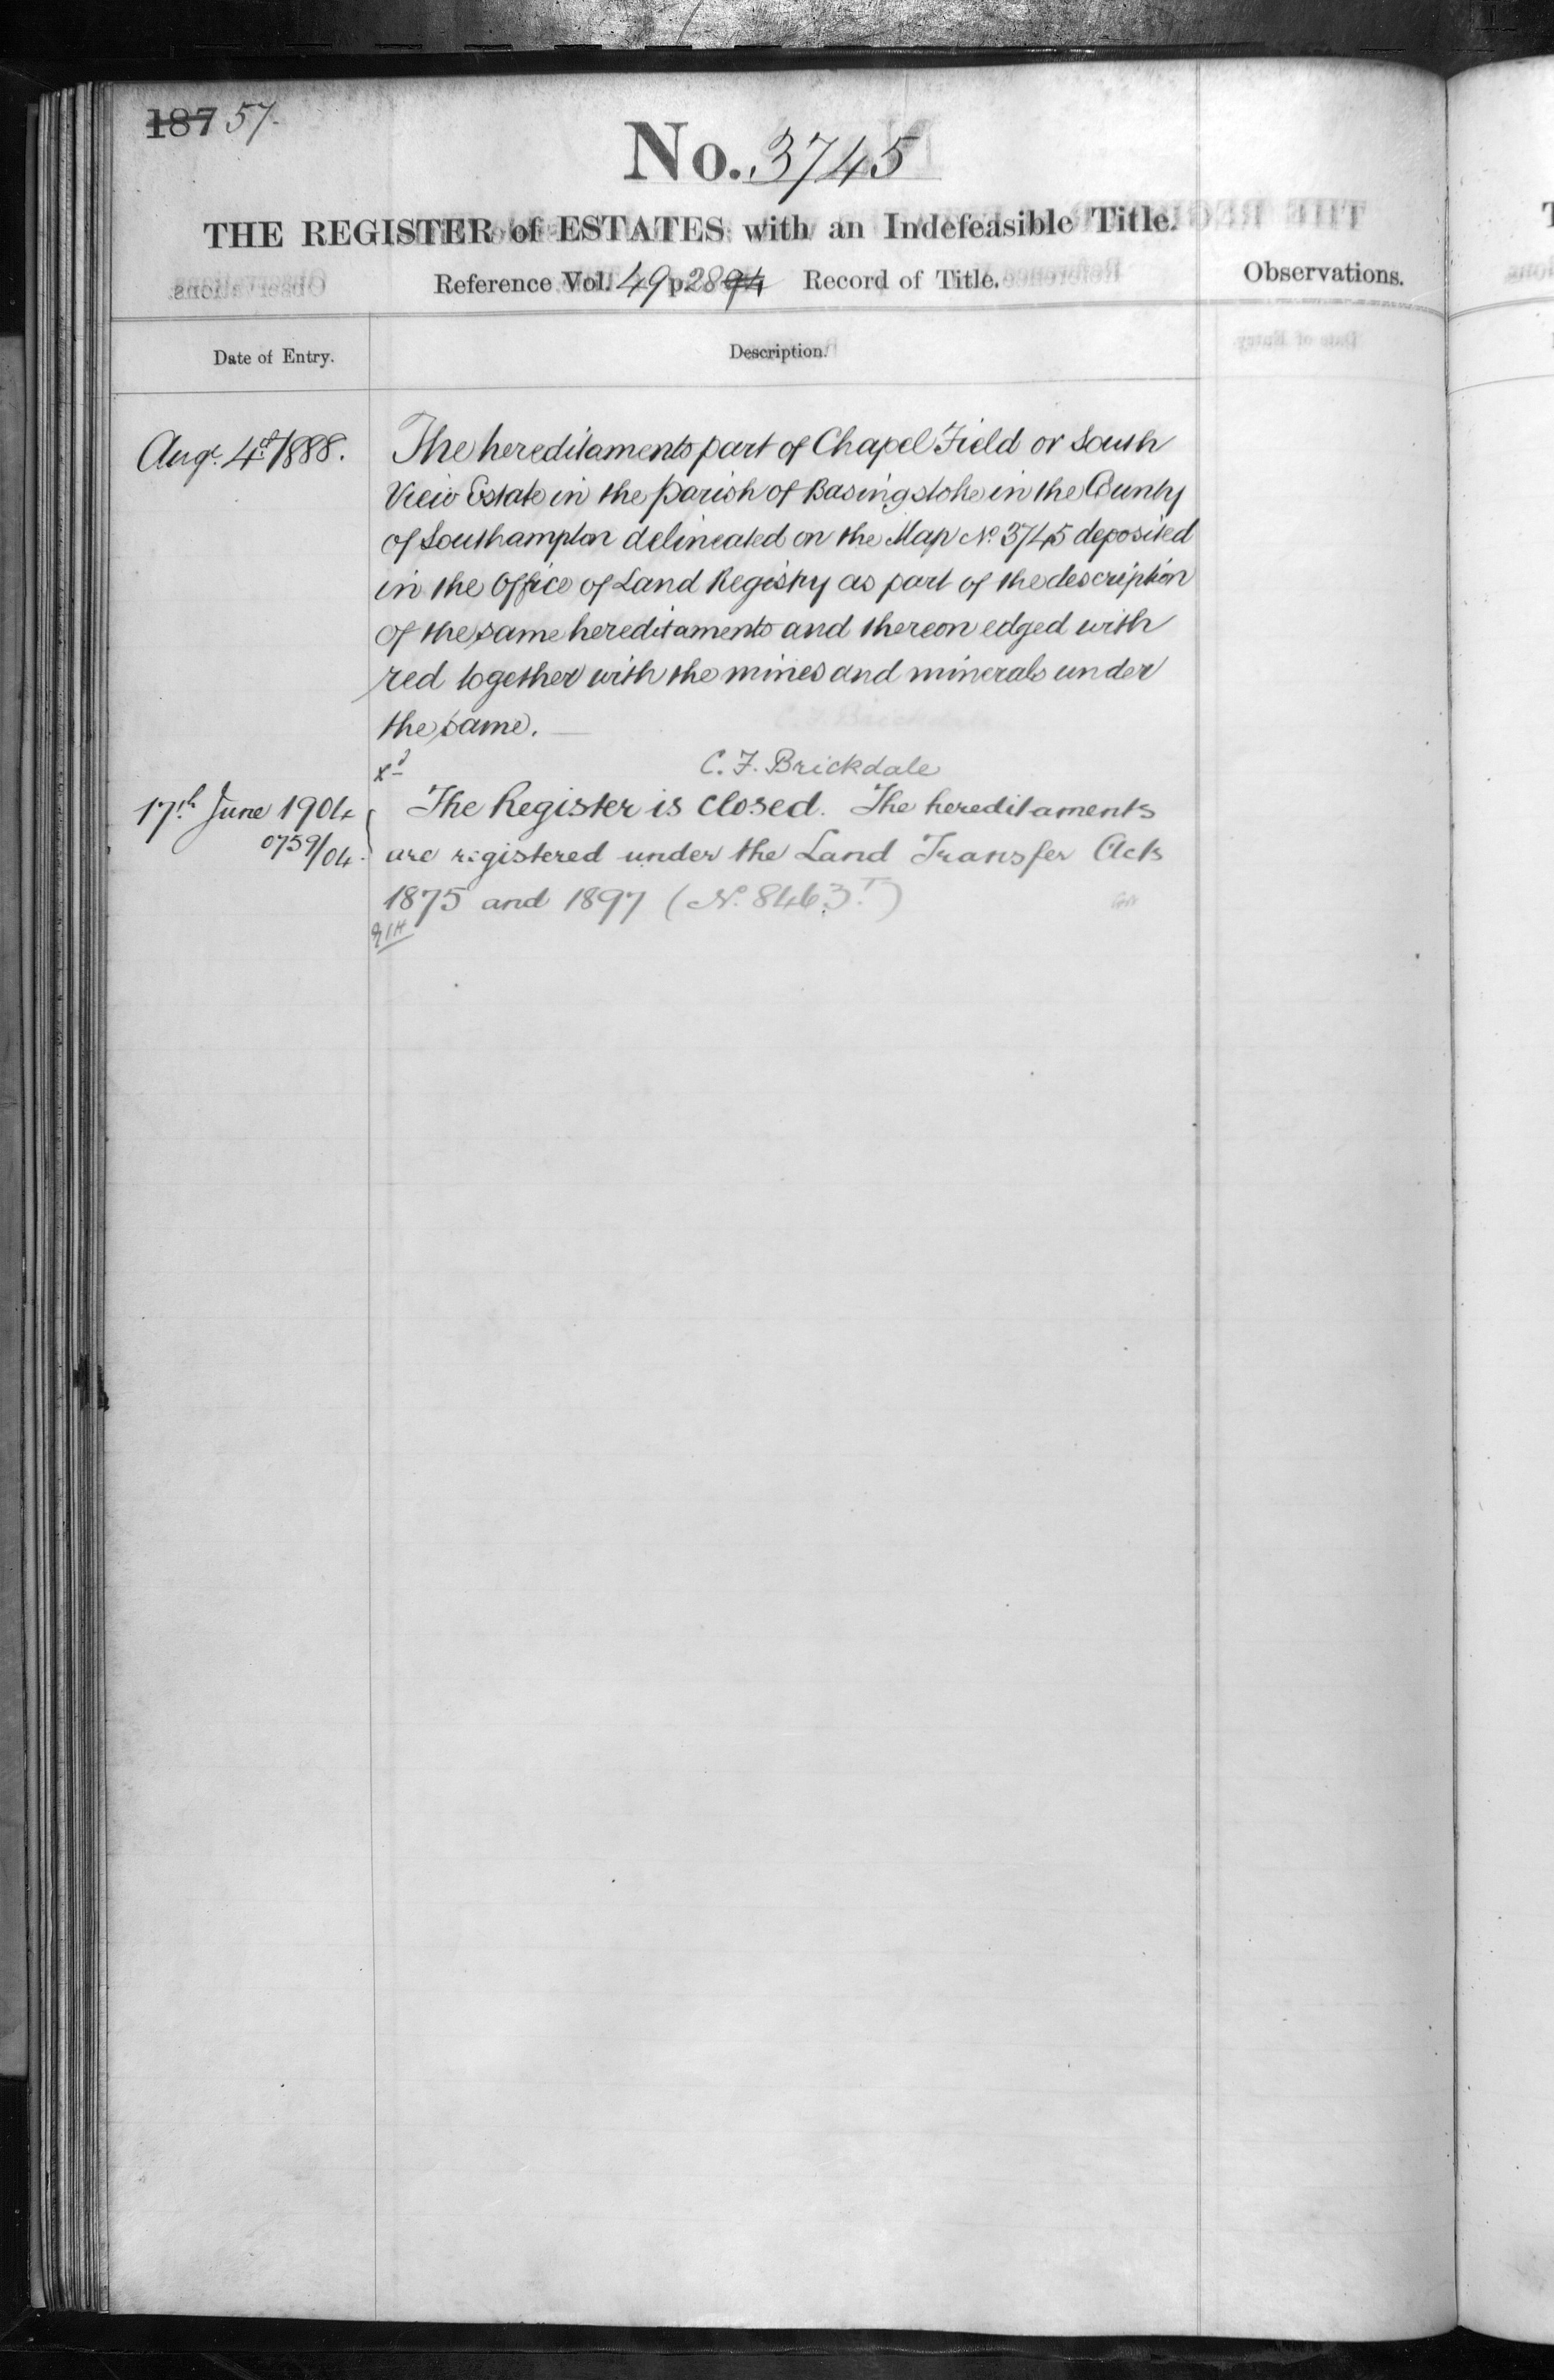 187 57.
No. 3745
THE REGISTER of ESTATES with an Indefeasible Title.
Reference Vol. 49 p. 28 94 Record of Title.
Observations.
Date of Entry.
Description.
Augt. 4th 1888.
The hereditaments part of Chapel Field or South
View Estate in the parish of Basingstoke in the County
of Southampton delineated on the Map No. 3745 deposited
in the Office of Land Registry as part of the description
of the same hereditaments and thereon edged with
red together with the mines and minerals under
the same.
xd
C. F. Brickdale
17th June 1904
0759/04
The Register is closed. The hereditaments
are registered under the Land Transfer Acts
1875 and 1897 (No. 8463T)